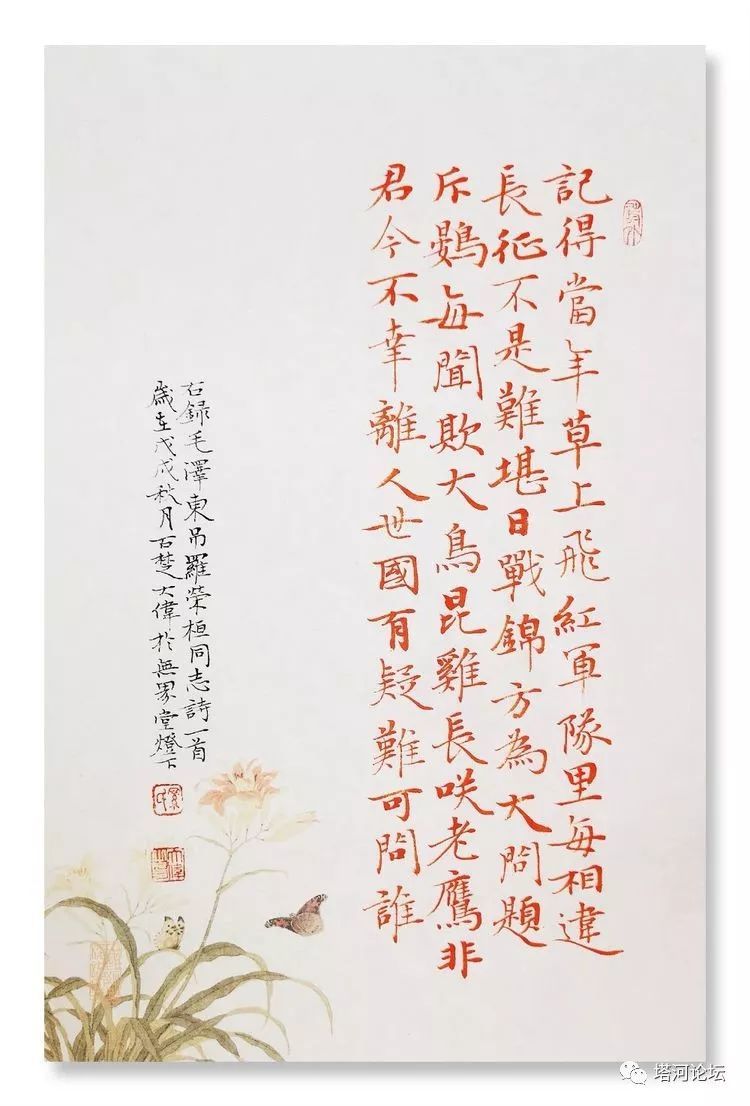 記得當年草上飛紅軍隊里每相違
長征不是難堪日戰錦方為大問題
斥鷃每聞欺大鳥昆雞長咲老鷹非
君今不幸離人世國有疑難可問誰
右錄毛澤東吊羅榮桓同志詩一首
歲在戊戌秋月楚大偉於無界堂燈下
塔河论坛